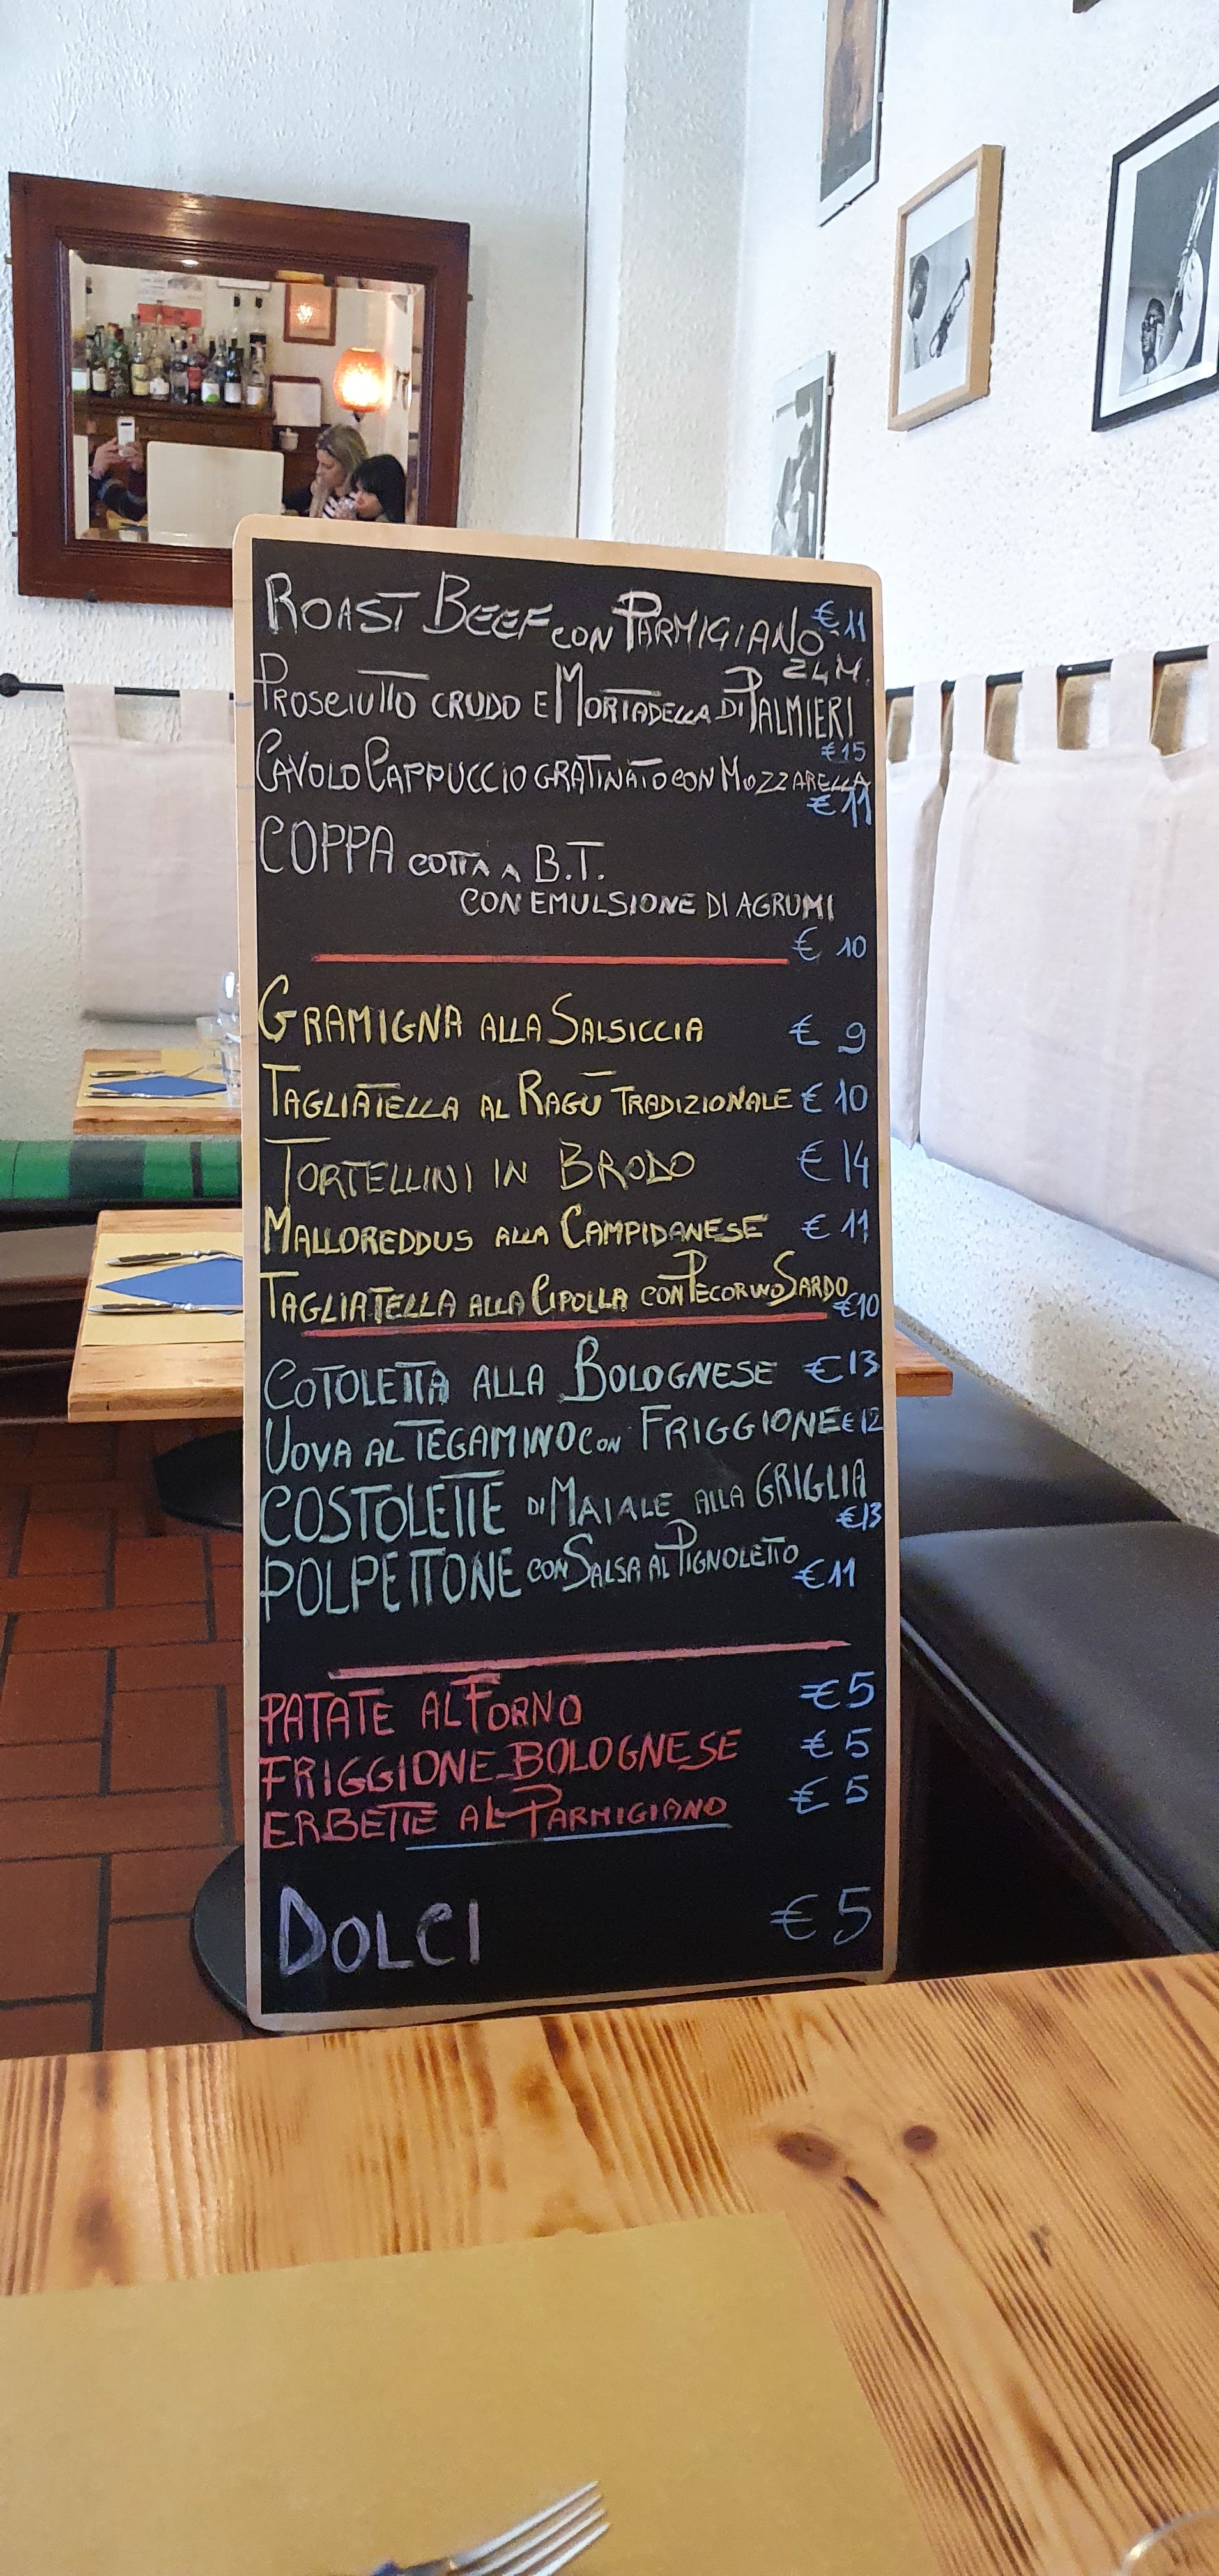 ROAST BEEF CON PARMIGIANO €11
24M.
PROSCIUTTO CRUDO E MORTADELLA DI PALMIERI
€15
CAVOLO CAPPUCCIO GRATINATO CON MOZZARELLA
€11
COPPA COTTA A B.T.
CON EMULSIONE DI AGRUMI
€ 10
GRAMIGNA ALLA SALSICCIA € 9
TAGLIATELLA AL RAGÙ TRADIZIONALE € 10
TORTELLINI IN BRODO € 14
MALLOREDDUS ALLA CAMPIDANESE € 11
TAGLIATELLA ALLA CIPOLLA CON PECORINO SARDO €10
COTOLETTA ALLA BOLOGNESE €13
UOVA AL TEGAMINO CON FRIGGIONE €12
COSTOLETTE DI MAIALE ALLA GRIGLIA
€13
POLPETTONE CON SALSA AL PIGNOLETTO €11
PATATE AL FORNO €5
FRIGGIONE BOLOGNESE €5
ERBETTE AL PARMIGIANO €5
DOLCI €5